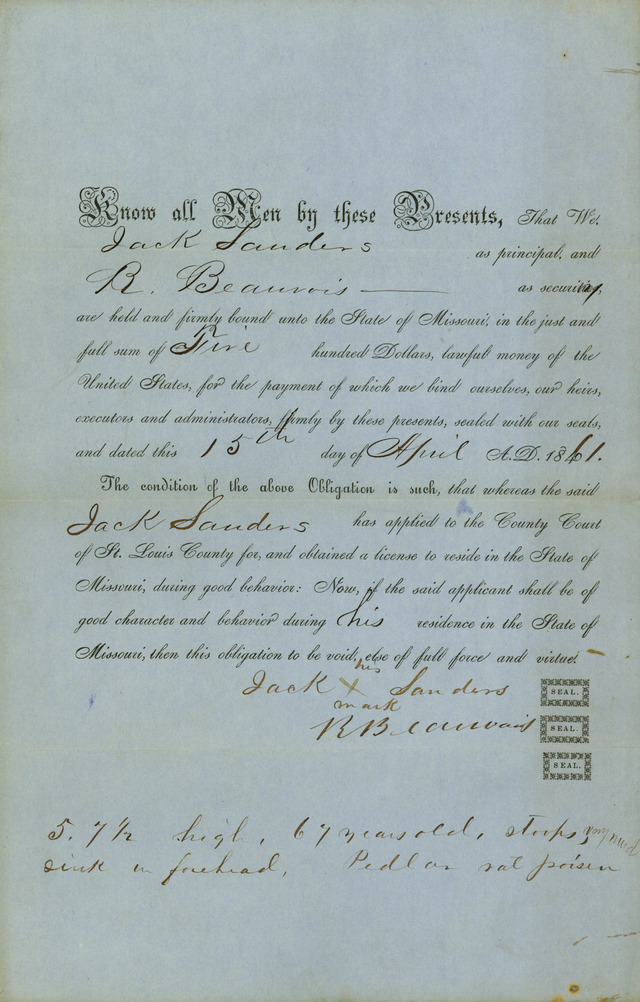 Know all Men by these Presents, That We,
Jack Sanders as principal, and
R. Beauvais as security,
are held and firmly bound unto the State of Missouri, in the just and
full sum of Five hundred Dollars, lawful money of the
United States, for the payment of which we bind ourselves, our heirs,
executors and administrators, firmly by these presents, sealed with our seals,
and dated this 15th day of April A.D. 1861.
The condition of the above Obligation is such, that whereas the said
Jack Sanders has applied to the County Court
of St. Louis County for, and obtained a license to reside in the State of
Missouri, during good behavior: Now, if the said applicant shall be of
good character and behavior during his residence in the State of
Missouri, then this obligation to be void, else of full force and virtue.
his
Jack X Sanders SEAL.
mark
R Beauvais SEAL.
SEAL.
5. 7 1/2 high, 67 years old, stoops,
sink in forehead, Pedlar rat poisen